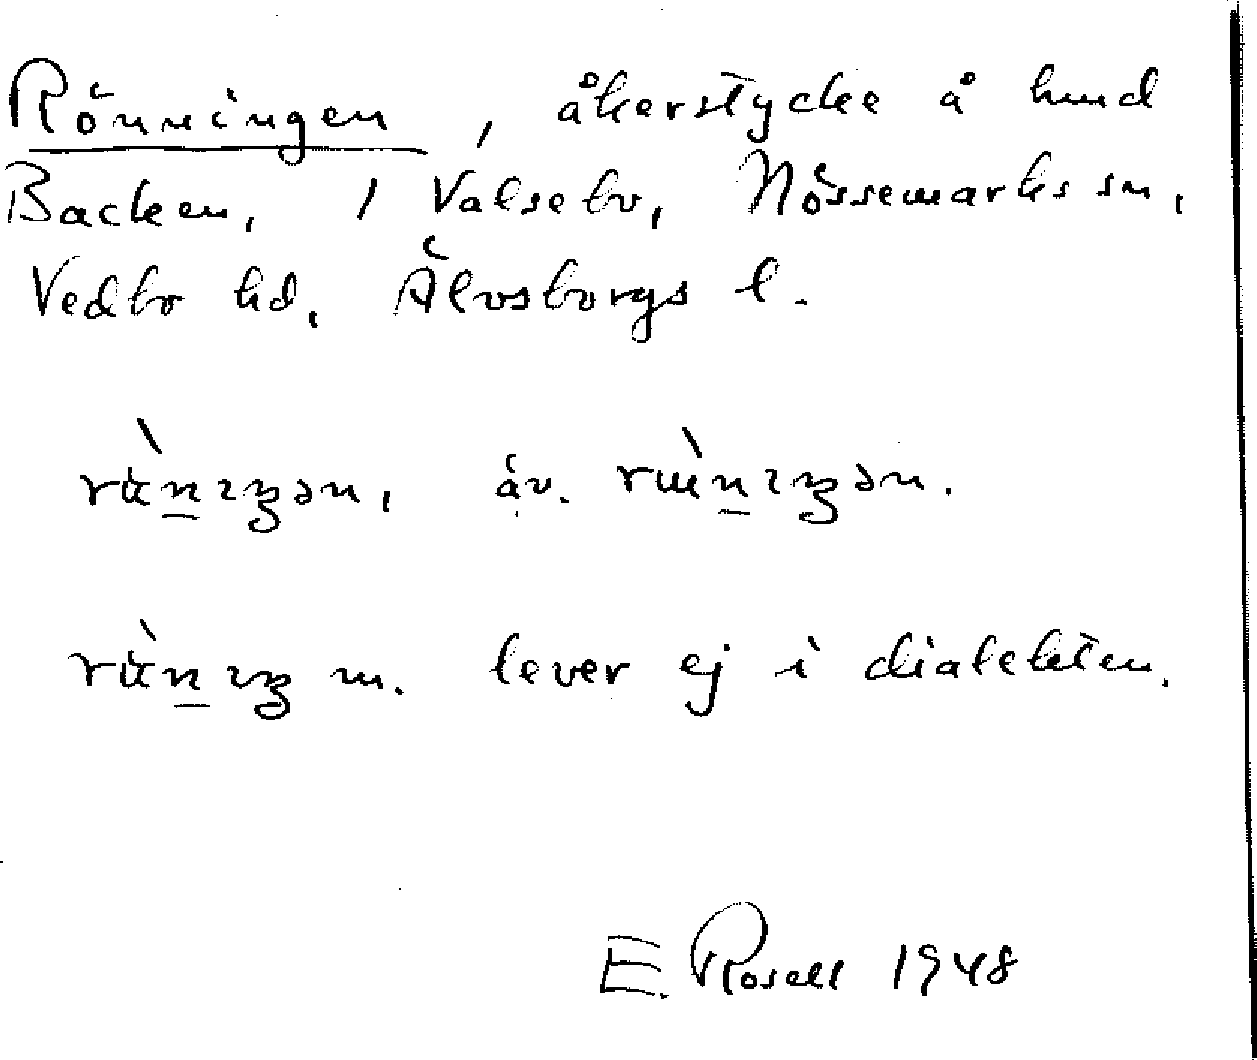 Rönningen, åkerstycke å hmd
Backen, 1 Valsebo, Nössemarks sn,
Vedbo hd, Älvsborgs l.
äv.
m. lever ej i dialekten.
E. Rosell 1948